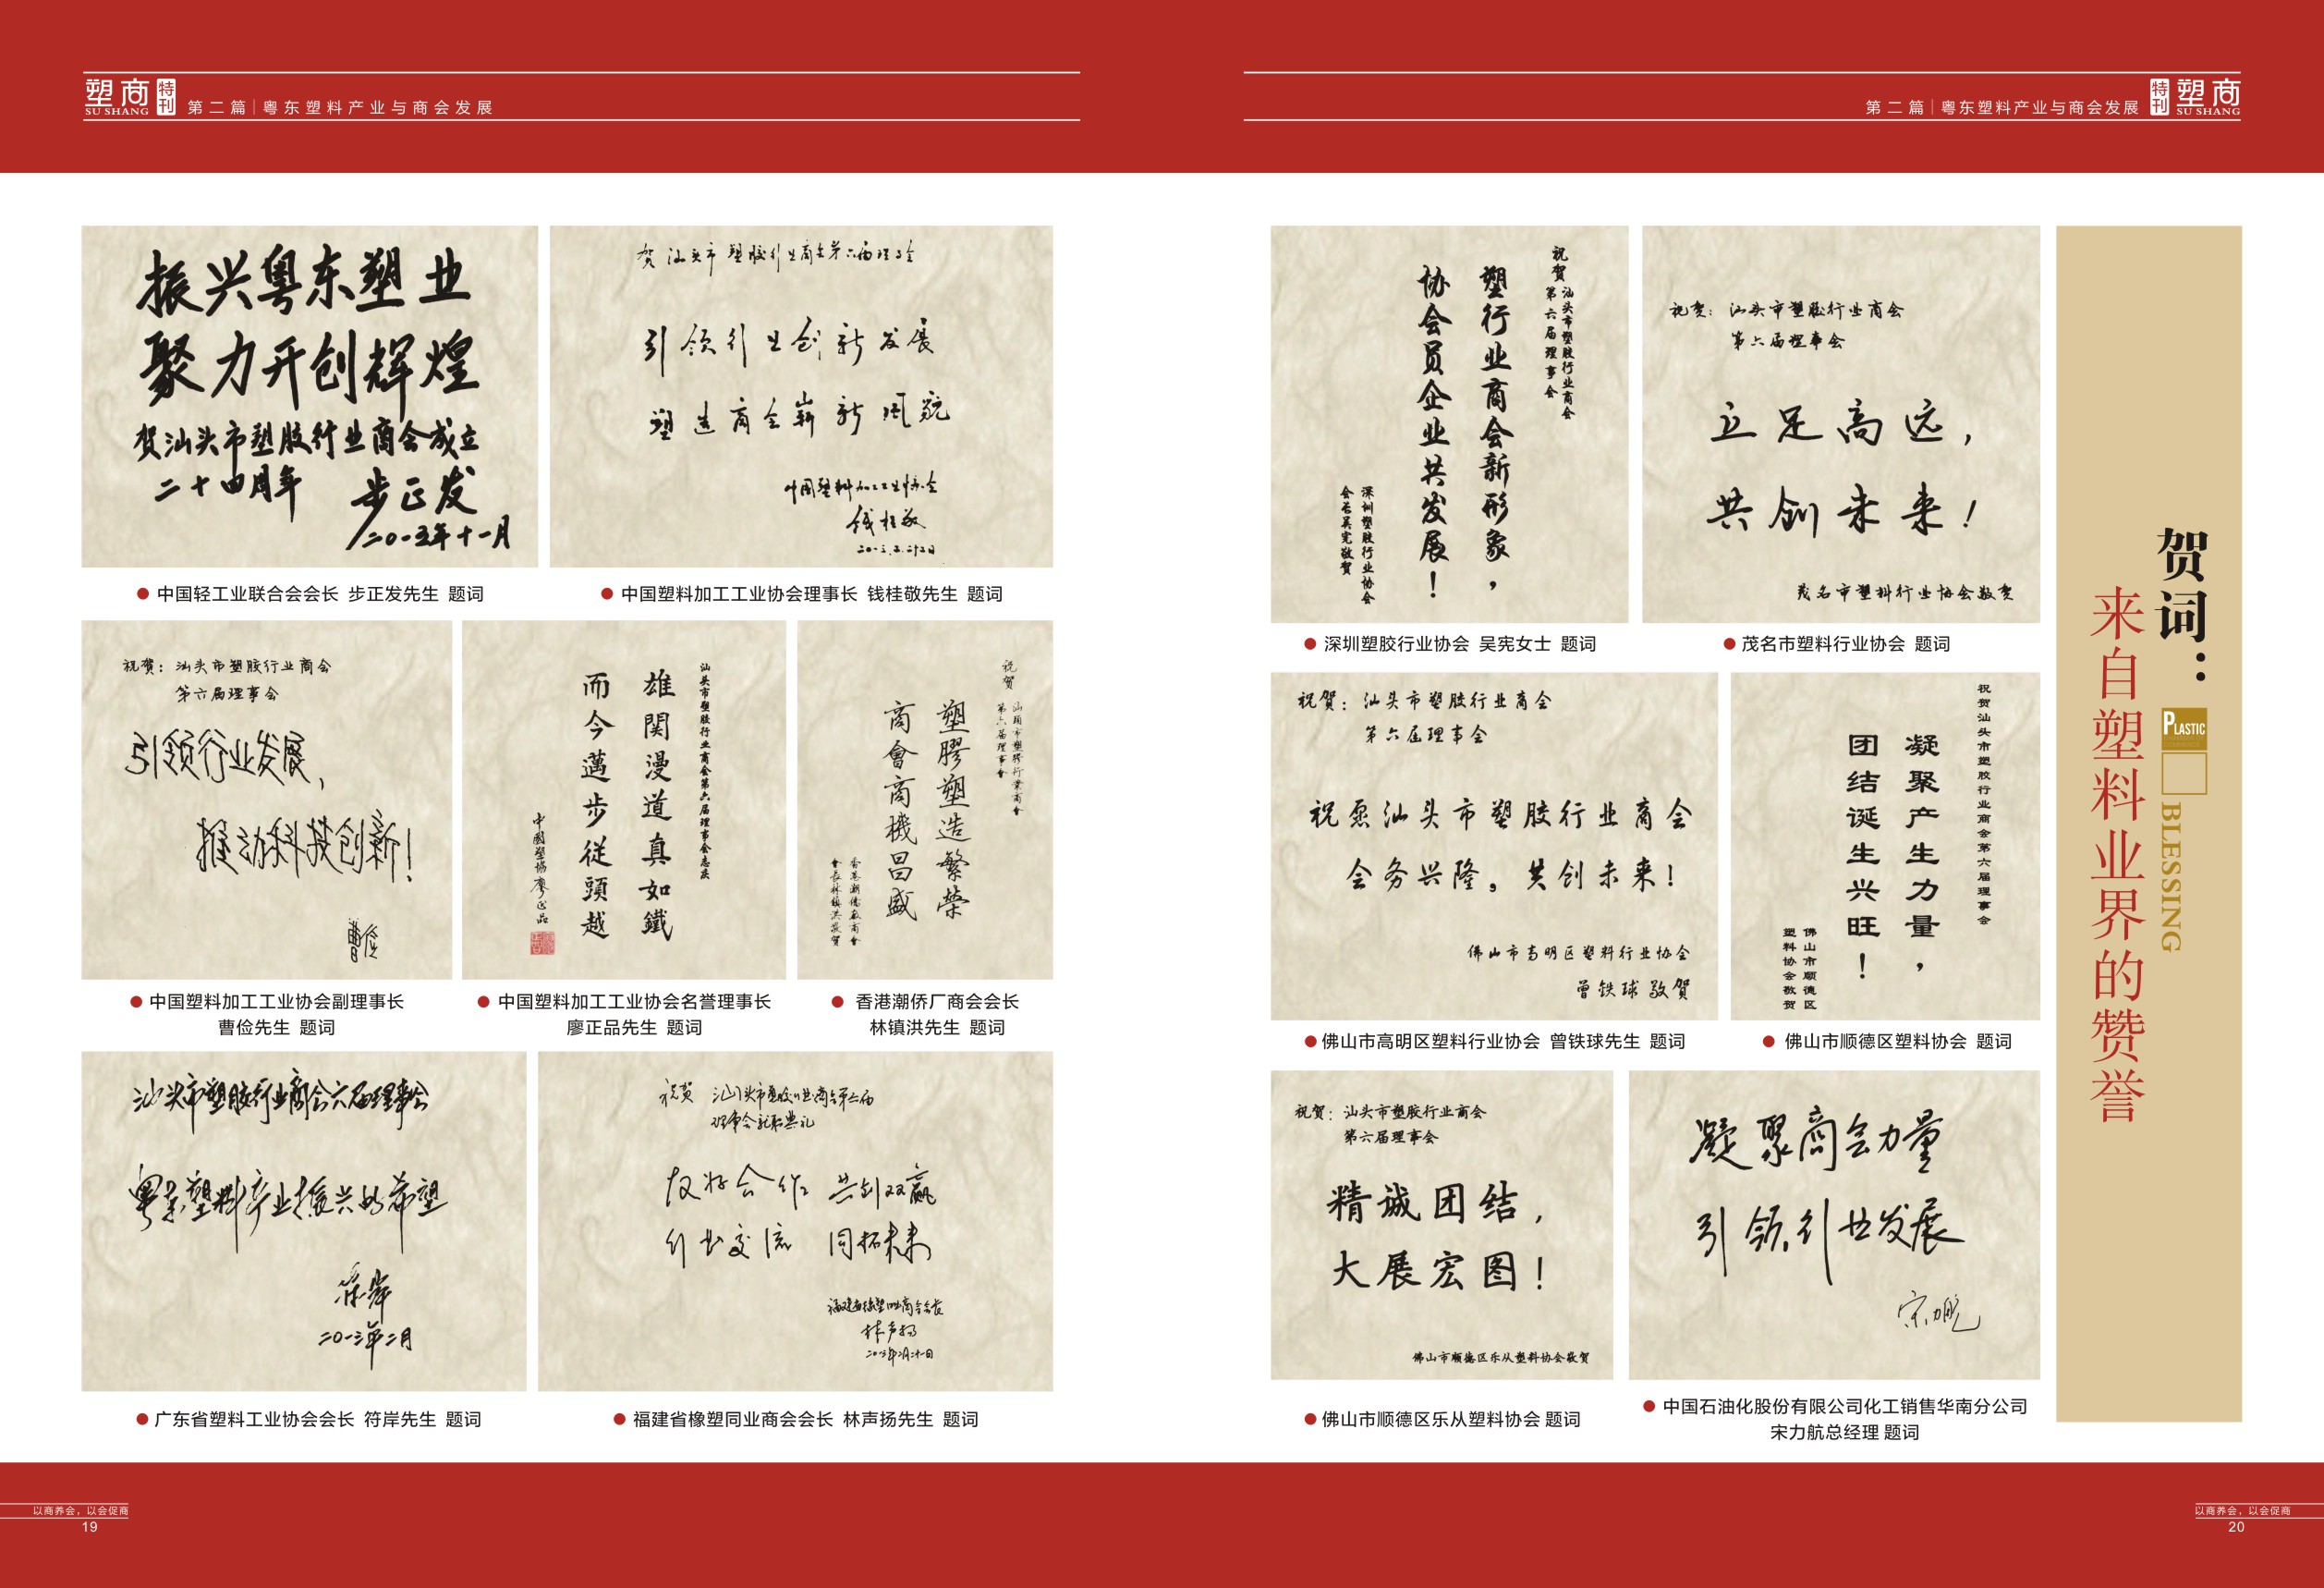 塑商 特刊
SU SHANG
第二篇 | 粤东塑料产业与商会发展
振兴粤东塑业
聚力开创辉煌
贺汕头市塑胶行业商会成立
二十四周年 步正发
二〇一三年十一月
● 中国轻工业联合会会长 步正发先生 题词
贺汕头市塑胶行业商会第六届理事会
引领行业创新发展
塑造商会崭新风貌
中国塑料加工工业协会
钱桂敬
● 中国塑料加工工业协会理事长 钱桂敬先生 题词
祝贺：汕头市塑胶行业商会
第六届理事会
引领行业发展，
推动科技创新！
曹俭
● 中国塑料加工工业协会副理事长
曹俭先生 题词
汕头市塑胶行业商会第六届理事会志庆
雄関漫道真如鐵
而今邁步従頭越
中國塑協廖正品
● 中国塑料加工工业协会名誉理事长
廖正品先生 题词
祝贺
汕頭市塑膠行業商會
第六届理事會
塑膠塑造繁榮
商會商機昌盛
香港潮僑廠商會
會長林鎮洪敬賀
● 香港潮侨厂商会会长
林镇洪先生 题词
汕头市塑胶行业商会六届理事会
粤东塑料产业振兴的希望
符岸
二〇一三年二月
● 广东省塑料工业协会会长 符岸先生 题词
祝贺 汕头市塑胶行业商会第六届
理事会就职典礼
友好合作 共创双赢
行业交流 同拓未来
福建省橡塑同业商会会长
林声扬
● 福建省橡塑同业商会会长 林声扬先生 题词
以商养会，以会促商
19
第二篇 | 粤东塑料产业与商会发展
特刊 塑商
SU SHANG
贺词：
PLASTIC
BLESSING
来自塑料业界的赞誉
祝贺汕头市塑胶行业商会
第六届理事会
塑行业商会新形象，
协会员企业共发展！
深圳塑胶行业协会
会长吴宪敬贺
● 深圳塑胶行业协会 吴宪女士 题词
祝贺：汕头市塑胶行业商会
第六届理事会
立足高远，
共创未来！
茂名市塑料行业协会敬贺
● 茂名市塑料行业协会 题词
祝贺：汕头市塑胶行业商会
第六届理事会
祝愿汕头市塑胶行业商会
会务兴隆，共创未来！
佛山市高明区塑料行业协会
曾铁球敬贺
● 佛山市高明区塑料行业协会 曾铁球先生 题词
祝贺汕头市塑胶行业商会第六届理事会
凝聚产生力量，
团结诞生兴旺！
佛山市顺德区
塑料协会敬贺
● 佛山市顺德区塑料协会 题词
祝贺：汕头市塑胶行业商会
第六届理事会
精诚团结，
大展宏图！
佛山市顺德区乐从塑料协会敬贺
● 佛山市顺德区乐从塑料协会 题词
凝聚商会力量
引领行业发展
宋力航
● 中国石油化股份有限公司化工销售华南分公司
宋力航总经理 题词
以商养会，以会促商
20